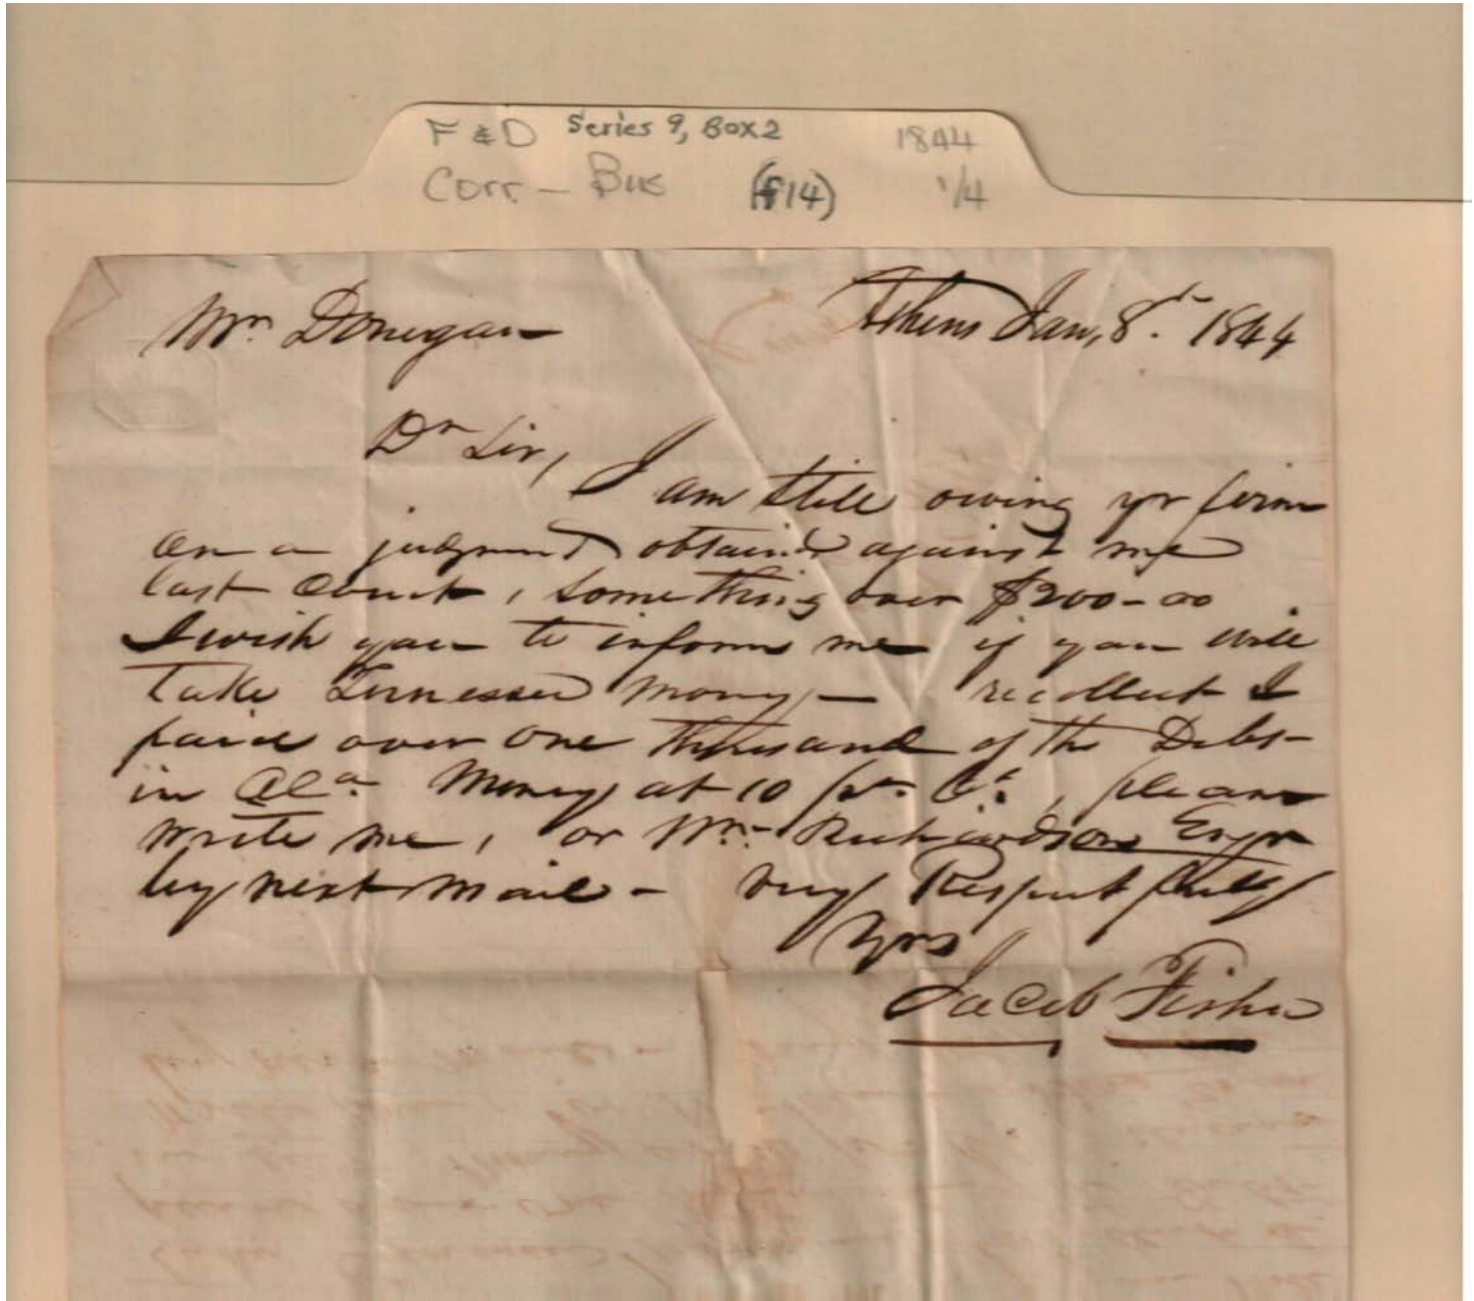 F & D Series 9, Box 2 1844
Corr - Bus (f14) 1/4
Mr. Donegan Athens Jan, 8th 1844
Dr Sir,
I am still owing yr firm
on a judgment obtaind against me
last Court, something over $200-00
I wish you to inform me if you will
take Tennessee Money - recollect I
paid over One thousand of the Debt
in Ala. Money at 10 pr. Ct., please
write me, or Wm. Richardson Esqr
by next mail - Very Respectfully
Yrs
Jacob Fisher